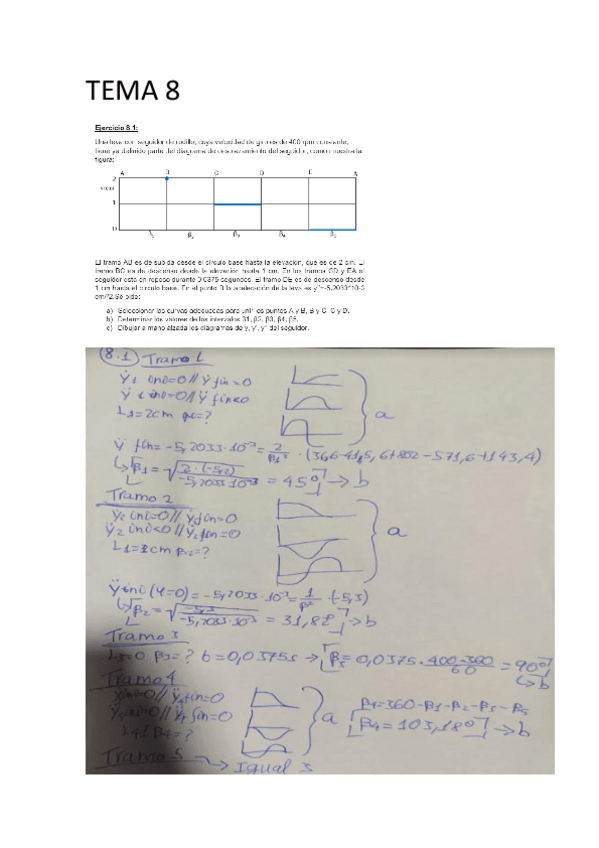 TEMA 8
Ejercicio 8.1:
Una leva con seguidor de rodillo, cuya velocidad de giro es de 400 rpm constante,
tiene ya definido parte del diagrama de desplazamiento del seguidor, como muestra la
figura:
A B C D E A
2
1
0
β1 β2 β3 β4 β5
El tramo AB es de subida desde el círculo base hasta la elevación, que es de 2 cm. El
tramo BC es de descenso desde la elevación hasta 1 cm. En los tramos CD y EA el
seguidor está en reposo durante 0,0375 segundos. El tramo DE es de descenso desde
1 cm hasta el círculo base. En el punto B la aceleración de la leva es y''=-5,2033*10-3
cm/º2. Se pide:
a) Seleccionar las curvas adecuadas para unir los puntos A y B, B y C, C y D.
b) Determinar los valores de los intervalos β1, β2, β3, β4, β5.
c) Dibujar a mano alzada los diagramas de y, y', y'' del seguidor.
8.1 Tramo 1
ini=0 // Ÿ fin=0
L1=2cm =?
a
Ÿ fin = -5,2033·10⁻³ = 2/β1² · (36,6-411,5, 6+802-571,6+143,4)
β1 = √(2·(-5,2)/-5,2033·10⁻³) = 45º → b
Tramo 2
Ÿ2 ini<0 // Ÿ2 fin=0
β2=?
a
Ÿ ini (φ=0) = -5,2033·10⁻³ = 1/β² · (-5,3)
β2 = √(-5,3/-5,2033·10⁻³) = 31,82º → b
Tramo 3
L3=0 β3=? b=0,0375s → β3 = 0,0375·400·360/60 = 90º → b
Tramo 4
a
β4=360-β1-β2-β3-β5
β4=103,18º → b
β4=?
Tramo 5 → Igual 3